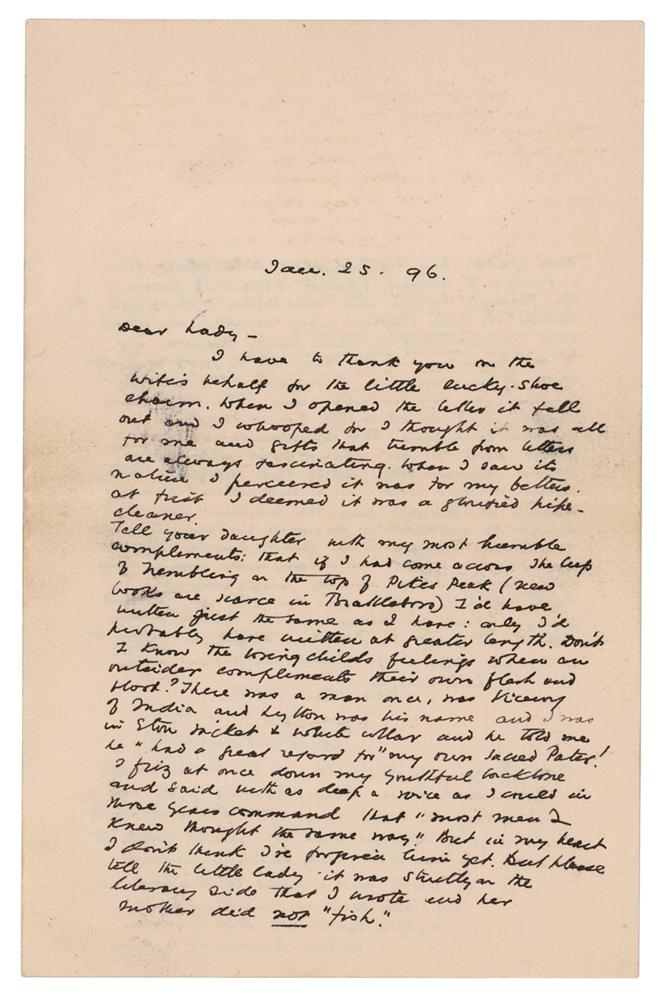 Jan. 25. 96.
Dear Lady –
I have to thank you on the
wife's behalf for the little lucky-shoe
charm. When I opened the letter it fell
out and I whooped for I thought it was all
for me and gifts that tumble from letters
are always fascinating. When I saw its
nature I perceived it was for my betters.
at first I deemed it was a glorified pipe-
cleaner.
Tell your daughter with my most humble
compliments: that if I had come across The Cup
of Trembling on the top of Pikes Peak (new
books are scarce in Brattleboro) I'd have
written just the same as I have: only I'd
probably have written at greater length. Don't
I know the loving childs feelings when an
outsider compliments their own flesh and
blood? There was a man once, was Viceroy
of India and Lytton was his name and I was
in Eton jacket & white collar and he told me
he "had a great regard for" my own Sacred Pater!
I friz at once down my youthful backbone
and said with as deep a voice as I could in
those years command that "most men I
knew thought the same way." But in my heart
I don't think I've forgiven him yet. But please
tell the little lady it was strictly on the
literary side that I wrote and her
mother did not "fish."